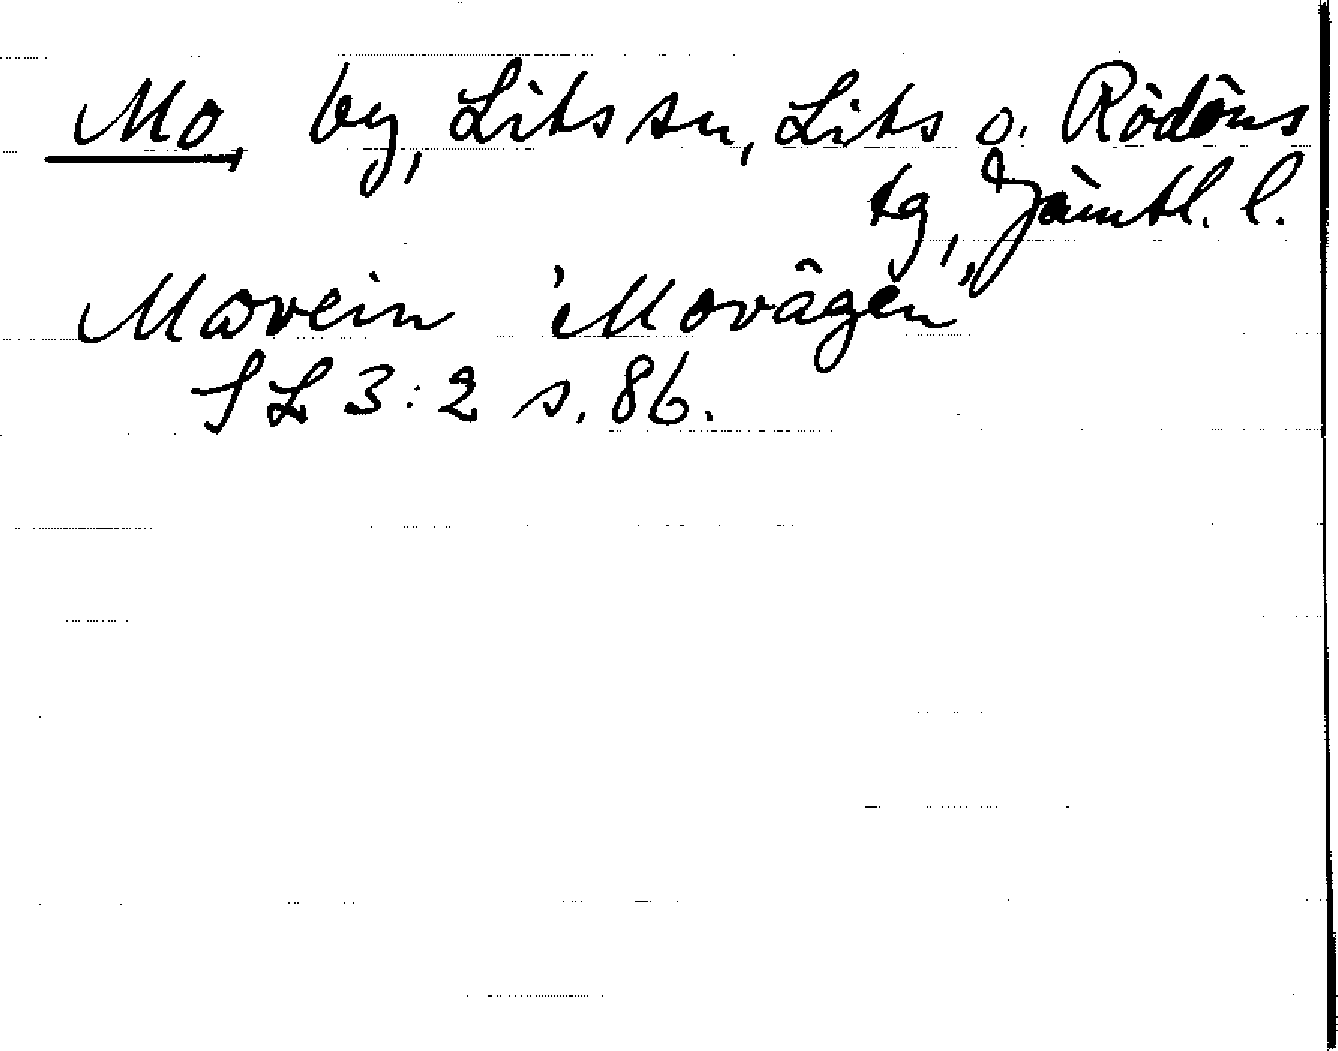 Mo, by, Lits sn, Lits o. Rödöns
tg, Jämtl. l.
Movein 'Movägen',
SL 3:2 s. 86.